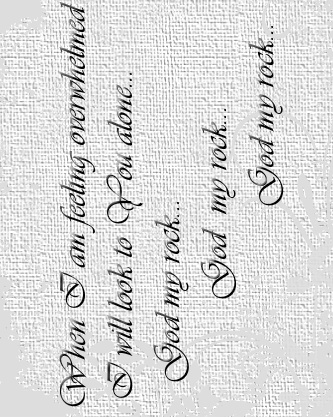 When I am feeling overwhelmed
I will look to You alone...
God my rock...
God my rock...
God my rock...